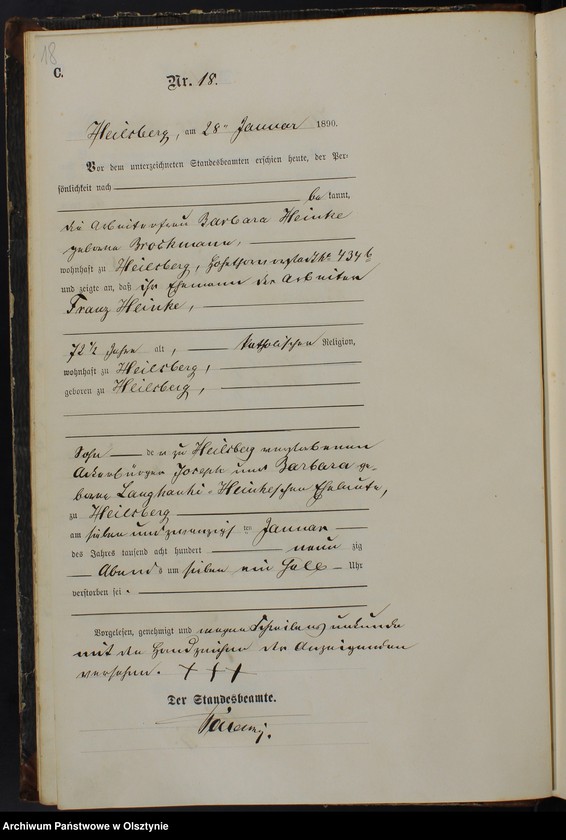 18
C.
Nr. 18.
Heilsberg, am 28ten Januar 1890.
Vor dem unterzeichneten Standesbeamten erschien heute, der Per-
sönlichkeit nach
be kannt,
die Arbeiterfrau Barbara Heinke
geborene Brochmann,
wohnhaft zu Heilsberg, 434b
und zeigte an, daß ihr Ehemann der Arbeiter
Franz Heinke,
72 1/2 Jahre alt, katholischer Religion,
wohnhaft zu Heilsberg,
geboren zu Heilsberg,
Sohn der zu Heilsberg verstorbenen
Ackerbürger Joseph und Barbara ge-
borene Langhanki-Heinkeschen Eheleute,
zu Heilsberg
am sieben und zwanzigsten Januar
des Jahres tausend acht hundert neun zig
Abends um sieben ein halb Uhr
verstorben sei.
Vorgelesen, genehmigt und wegen Schreibensunkunde
mit den Handzeichen der Anzeigenden
versehen. + + +
Der Standesbeamte.
Archiwum Państwowe w Olsztynie